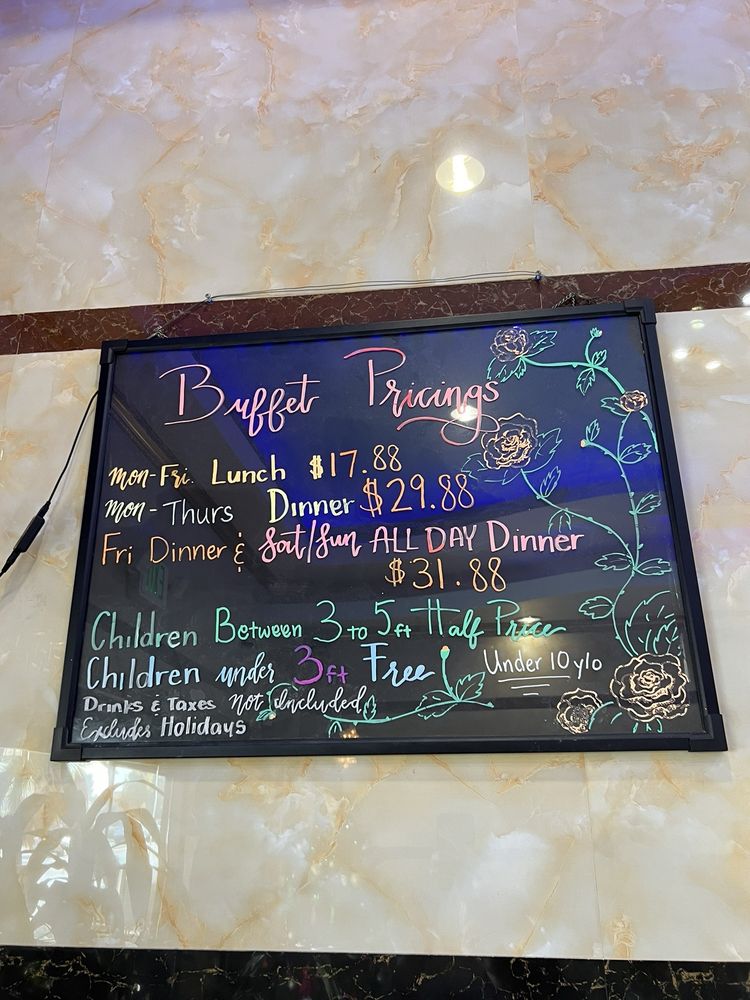 Buffet Pricings
Mon-Fri. Lunch $17.88
Mon-Thurs Dinner $29.88
Fri Dinner & Sat/Sun ALL DAY Dinner
$31.88
Children Between 3 to 5ft Half Price
Children under 3ft Free Under 10 y/o
Drinks & Taxes Not Included
Excludes Holidays